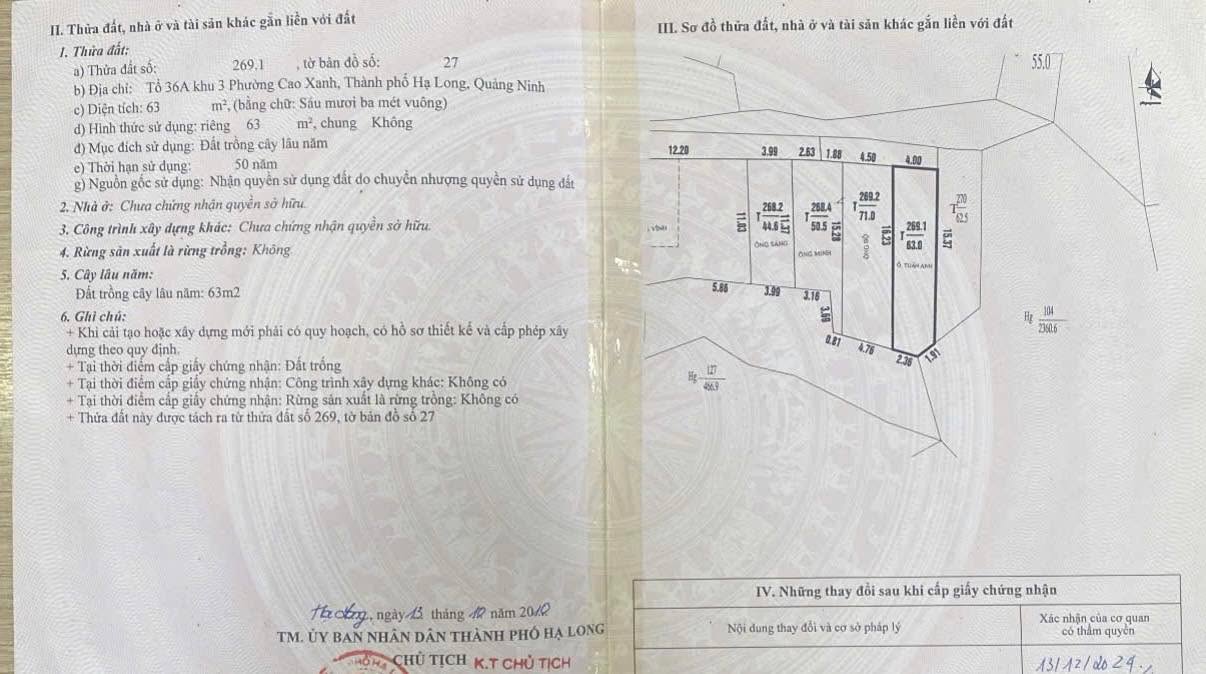 II. Thửa đất, nhà ở và tài sản khác gắn liền với đất
1. Thửa đất:
a) Thửa đất số: 269.1 , tờ bản đồ số: 27
b) Địa chỉ: Tổ 36A khu 3 Phường Cao Xanh, Thành phố Hạ Long, Quảng Ninh
c) Diện tích: 63 m², (bằng chữ: Sáu mươi ba mét vuông)
d) Hình thức sử dụng: riêng 63 m², chung Không
đ) Mục đích sử dụng: Đất trồng cây lâu năm
e) Thời hạn sử dụng: 50 năm
g) Nguồn gốc sử dụng: Nhận quyền sử dụng đất do chuyển nhượng quyền sử dụng đất
2. Nhà ở: Chưa chứng nhận quyền sở hữu.
3. Công trình xây dựng khác: Chưa chứng nhận quyền sở hữu.
4. Rừng sản xuất là rừng trồng: Không
5. Cây lâu năm:
Đất trồng cây lâu năm: 63m2
6. Ghi chú:
+ Khi cải tạo hoặc xây dựng mới phải có quy hoạch, có hồ sơ thiết kế và cấp phép xây
dựng theo quy định.
+ Tại thời điểm cấp giấy chứng nhận: Đất trống
+ Tại thời điểm cấp giấy chứng nhận: Công trình xây dựng khác: Không có
+ Tại thời điểm cấp giấy chứng nhận: Rừng sản xuất là rừng trồng: Không có
+ Thửa đất này được tách ra từ thửa đất số 269, tờ bản đồ số 27
, ngày 13 tháng 12 năm 2012
TM. ỦY BAN NHÂN DÂN THÀNH PHỐ HẠ LONG
CHỦ TỊCH K.T CHỦ TỊCH
III. Sơ đồ thửa đất, nhà ở và tài sản khác gắn liền với đất
55.0
12.20 3.99 2.63 1.88 4.50 4.00
VĨNH
11.83
T 268.2
44.6
11.37
ÔNG SÁNG
T 268.4
50.5
15.28
ÔNG MINH
T 269.2
71.0
16.23
T 269.1
63.0
Ô. TUẤN ANH
15.37
T 270
62.5
5.86 3.99 3.16
3.69
0.81 4.76 2.36 1.91
Hg 104
2360.6
Hg 127
466.9
IV. Những thay đổi sau khi cấp giấy chứng nhận
Nội dung thay đổi và cơ sở pháp lý
Xác nhận của cơ quan
có thẩm quyền
13/12/2024